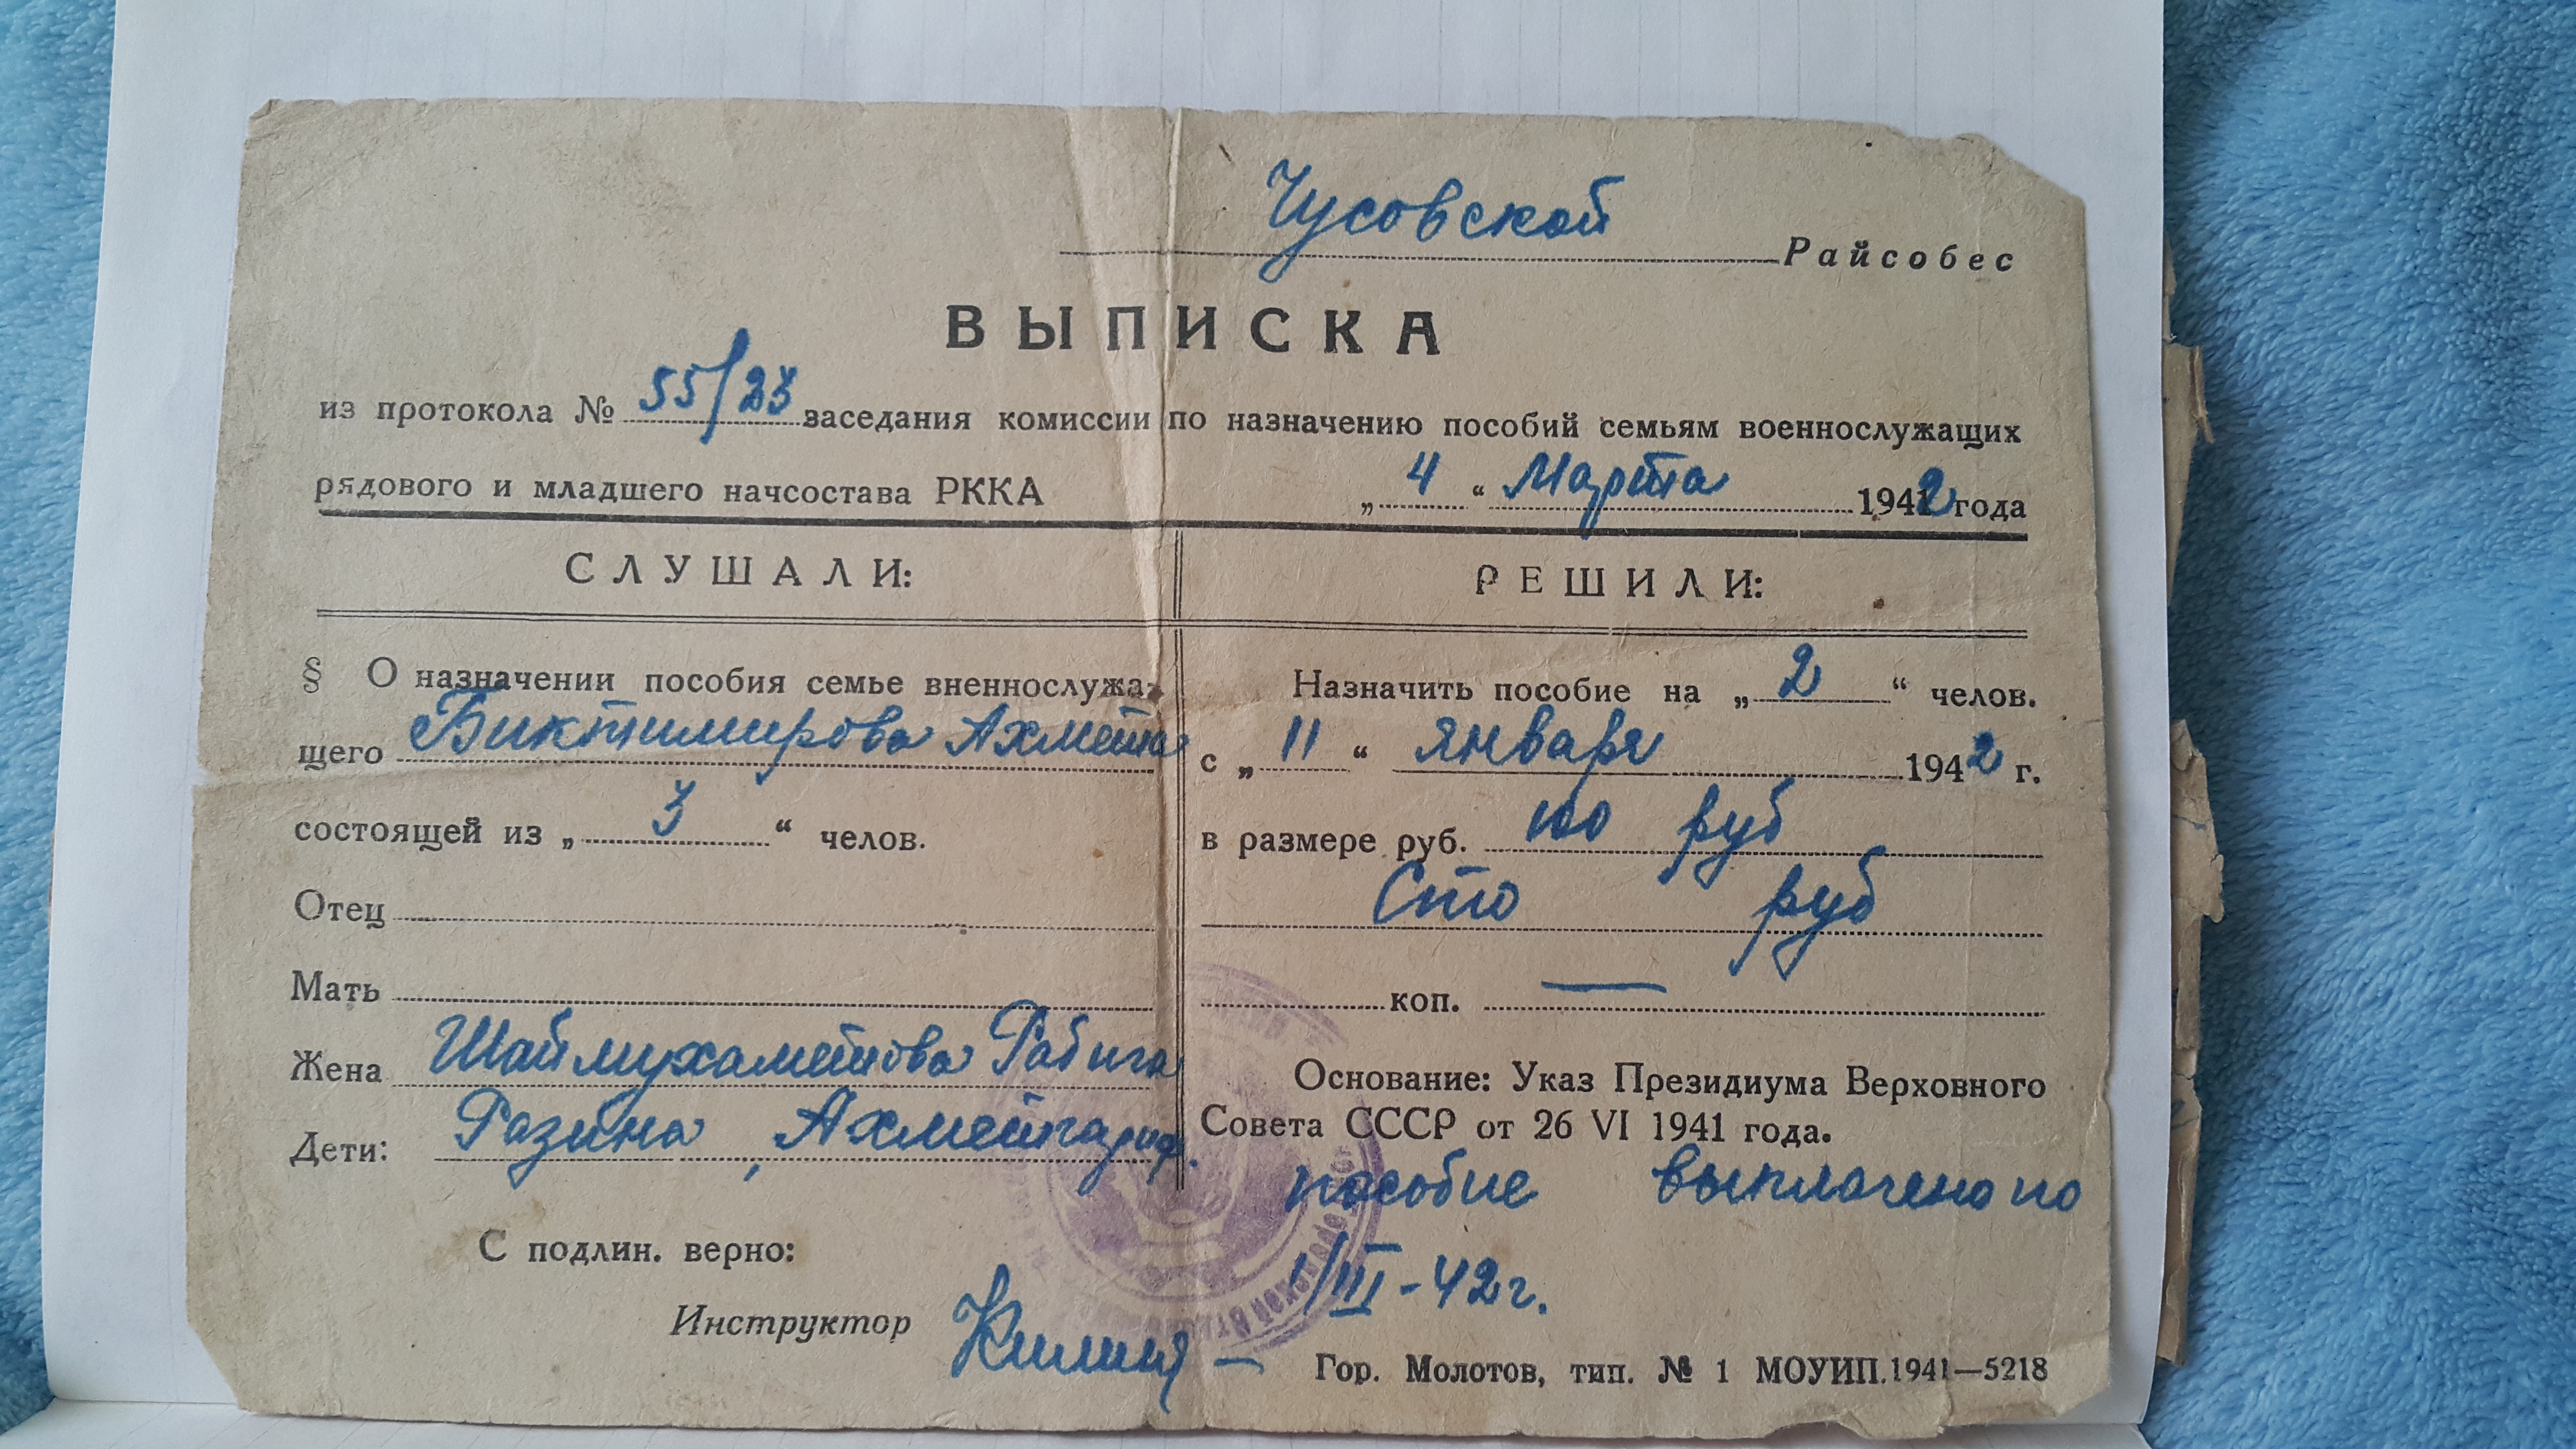 Чусовской Райсобес
ВЫПИСКА
из протокола № 55/23 заседания комиссии по назначению пособий семьям военнослужащих
рядового и младшего начсостава РККА „4“ Марта 1942 года
СЛУШАЛИ:
§ О назначении пособия семье вненнослужа-
щего Биктимирова Ахмета
состоящей из „3“ челов.
Отец
Мать
Жена Шаймухаметова Рабига
Дети: Разина, Ахметгариф.
С подлин. верно:
Инструктор
РЕШИЛИ:
Назначить пособие на „2“ челов.
с „11“ января 1942 г.
в размере руб. 100 руб
Сто руб
коп. —
Основание: Указ Президиума Верховного
Совета СССР от 26 VI 1941 года.
пособие выплачено по
1/III-42г.
Гор. Молотов, тип. № 1 МОУИП.1941—5218